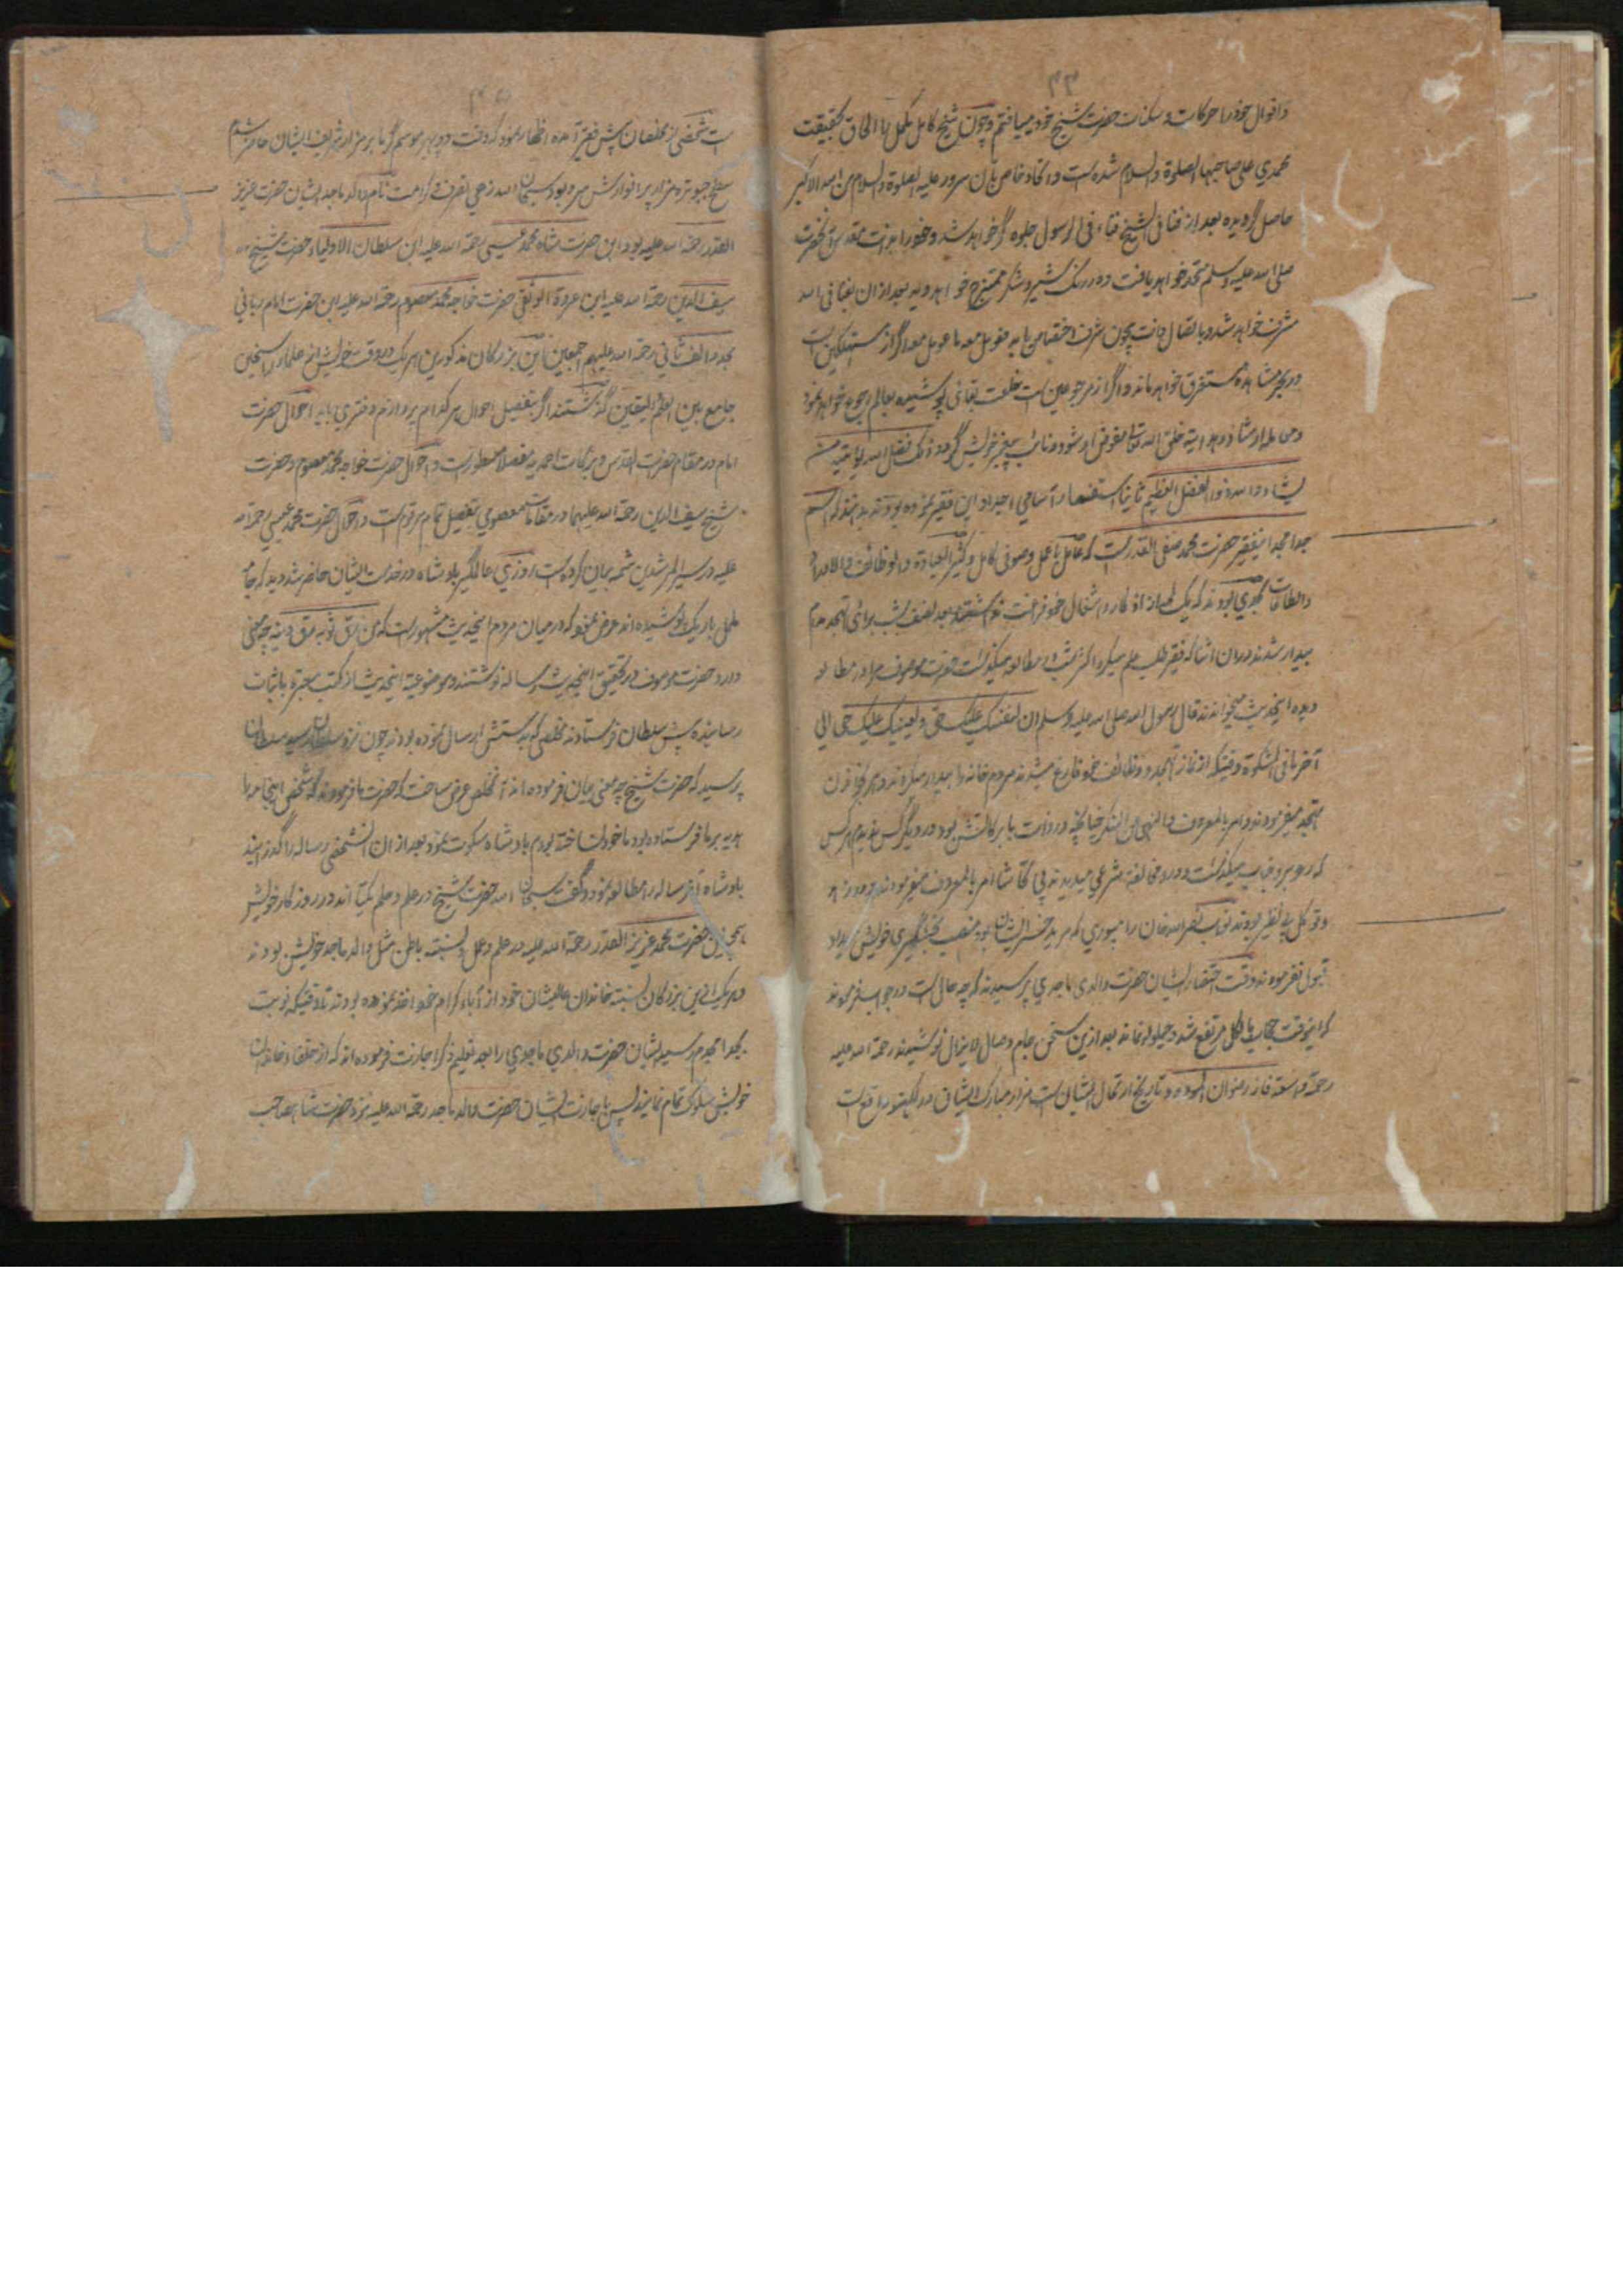 ۴۴
واقوال خود را حرکات و سکنات حضرت شیخ خود میساختم و چون شیخ کامل مکمل را الحاق بحقیقت
محمدي علی صاحبها الصلوة والسلام شده است و اتحاد خاص بآن سرور علیه الصلوة والسلام من الله الاکبر
حاصل گردیده بعد از فنا فی الشیخ فناء فی الرسول جلوه گر خواهد شد و خود را بذات مقدس آنحضرت
صلی الله علیه وسلم متحد خواهد یافت و در رنگ شیر و شکر ممتزج خواهد دید بعد از ان بفنا فی الله
مشرف خواهد شد و باتصال ذات بیچون شرف اختصاص یابد معه اگر از مستهلکین است
در بحر مشاهده مستغرق خواهد ماند و اگر از مرجوعین است خلعت بقائی پوشیده بعالم رجوع خواهد نمود
ومن بعد ارشاد و هدایت خلق الله تعالی مفوض او شود و نائب پیغمبر خویش گردد ذلک فضل الله یؤتیه من
یشاء والله ذوالفضل العظیم ثانیا استفسار اسامي اجداد این فقیر نموده بودند بدانند که اسم
جد امجد اینفقیر حضرت محمد صفی القدر است که عالم باعمل و صوفی کامل و کثیر العبادة والوظائف والاوراد
والطاعات بحدي بودند که یک لمحه از اذکار و اشغال خود فراغت نداشتند بعد نصف شب برای تهجد مدام
بیدار شدند دران اثنا که فقیر طلب علم میکرد اکثر شب در مطالعه میگذشت حضرت موصوف مرا در مطالعه
دیده اینحدیث میخواندند قال رسول الله صلی الله علیه وسلم ان لنفسک علیک حق ولعینک علیک حق الی
آخر ما فی المشکوة وقتیکه از نماز تهجد و وظائف خود فارغ میشدند مردم خانه را بیدار میکردند و امر بخواندن
تهجد میفرمودند و امر بالمعروف و النهی عن المنکر چنانچه در ذات بابرکاتش بود در دیگر کس ندیدم هر کس
که روبرو جناب میگذشت و در و مخالفه شرعي میدیدند بی تحاشا امر بالمعروف میفرمودند و در زهد
و توکل بی نظیر بودند نواب نصر الله خان رامپوري که مرید خسر ایشان بود منصب بخشیگیري خویش میداد
قبول نفرمودند وقت احتضار ایشان حضرت والدی ماجدي پرسیدند که چه حال است در جواب فرمودند
که اینوقت حجاب بالکل مرتفع شد و حیلوله نماند بعد ازین سخن جام وصال لایزال نوشیدند رحمة الله علیه
رحمة واسعة فاز رضوان المودود تاریخ ارتحال ایشان است مزار مبارک ایشان در لکهنو واقع است
۴۵
است شخصی از مخلصان پیش فقیر آمده اظهار نمود که وقت دوپهر موسم گرما بر مزار شریف ایشان حاضر شدم
سطح چبوتره مزار پر انوارش سرد بود سبحان الله زهي تصرف و کرامت نام والد ماجد ایشان حضرت عزیز
القدر رحمة الله علیه بود ابن حضرت شاه محمد عیسی رحمة الله علیه ابن سلطان الاولیاء حضرت شیخ
سیف الدین رحمة الله علیه ابن عروة الوثقی حضرت خواجه محمد معصوم رحمة الله علیه ابن حضرت امام رباني
مجدد الف ثاني رحمة الله علیهم اجمعین این بزرگان مذکورین هر یک در وقت خویش از علماء راسخین
جامع بین العلم والیقین گذشتند اگر بتفصیل احوال هر کدام پردازم دفتري باید احوال حضرت
امام در مقام حضرات القدس و برکات احمدیه مفصلا مسطور است و احوال حضرت خواجه محمد معصوم و حضرت
شیخ سیف الدین رحمة الله علیهما در مقامات معصومي بتفصیل تمام مرقوم است و احوال حضرت محمد عیسی رحمة الله
علیه در سیر المرشدین شمه بیان کرده است روزي عالمگیر بادشاه در خدمت ایشان حاضر شد دید که جامه
ململ باریک پوشیده اند عرض نمود که در میان مردم اینحدیث مشهور است که من رق ثوبه رق دینه چه معنی
دارد حضرت موصوف در تحقیق اینحدیث رساله نوشتند و موضوعیة اینحدیث از کتب معتبره باثبات
رسانیده پیش سلطان فرستادند مخلصی که بدستش ارسال نموده بودند چون نزد سلطان رسید سلطان
پرسید که حضرت شیخ چه معنی بیان فرموده اند آن مخلص عرض ساخت که حضرت ما فرمودند که شخصی اینجامه را
هدیه بر ما فرستاده بود ما خود نساخته بودیم بادشاه سکوت نمود بعد از ان آنشخص رساله را گذرانید
بادشاه آن رساله را مطالعه نمود و گفت سبحان الله حضرت شیخ در علم و حلم یکتا اند در روزگار خویش
همچنین حضرت محمد عزیز القدر رحمة الله علیه در علم و عمل و نسبت باطن مثل والد ماجد خویش بودند
و هر یکی ازین بزرگان نسبت خاندان عالیشان خود از آباء کرام خود اخذ نموده بودند تا وقتیکه نوبت
بجد امجدم رسید ایشان حضرت والدي ماجدي را بعد تعلیم ذکر اجازت فرموده اند که از خلفاء خاندان
خویش سلوک تمام نمایند پس باجازت ایشان حضرت والد ماجد رحمة الله علیه نزد حضرت شاه صاحب